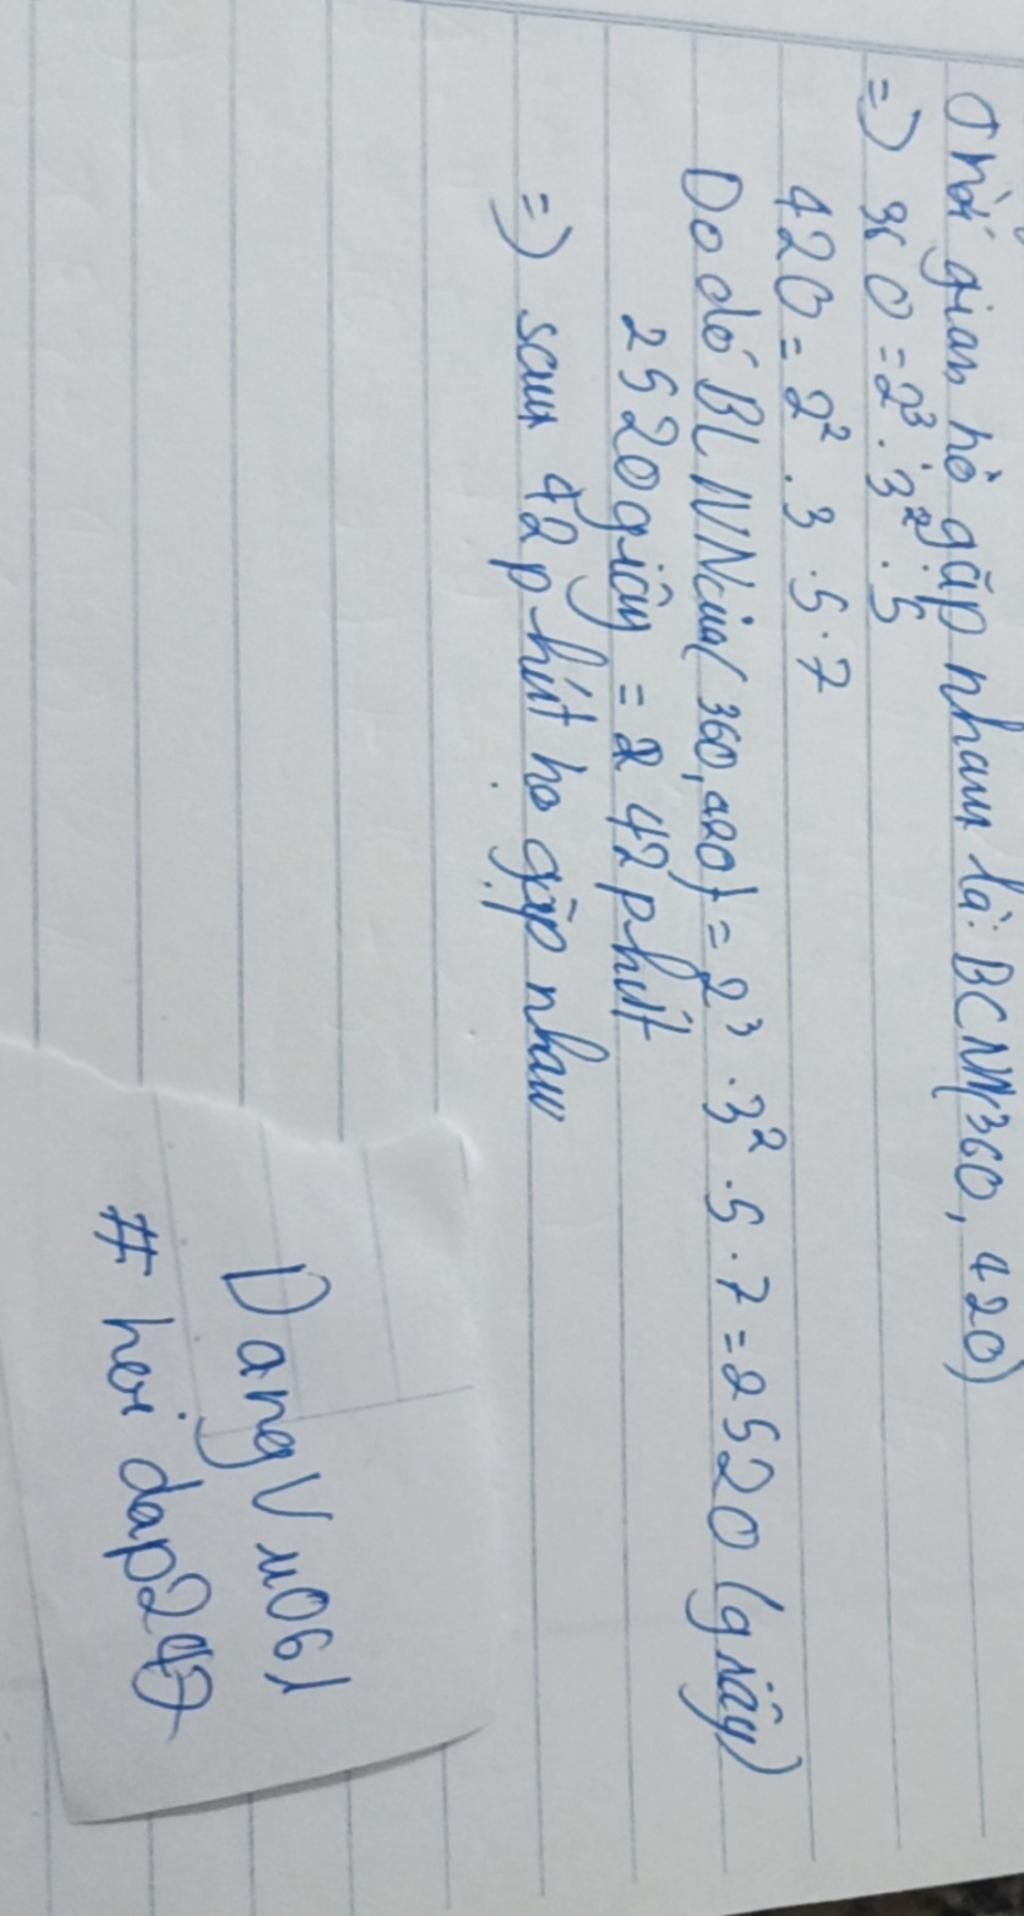 Thời gian họ gặp nhau là: BCNN(360, 420)
=) 360 = 2³ . 3² . 5
420 = 2² . 3 . 5 . 7
Do đó BCNN của (360, 420) = 2³ . 3² . 5 . 7 = 2520 (giây)
2520 giây = 42 phút
=) sau 42 phút họ gặp nhau
DangVu061
# hoi dap247